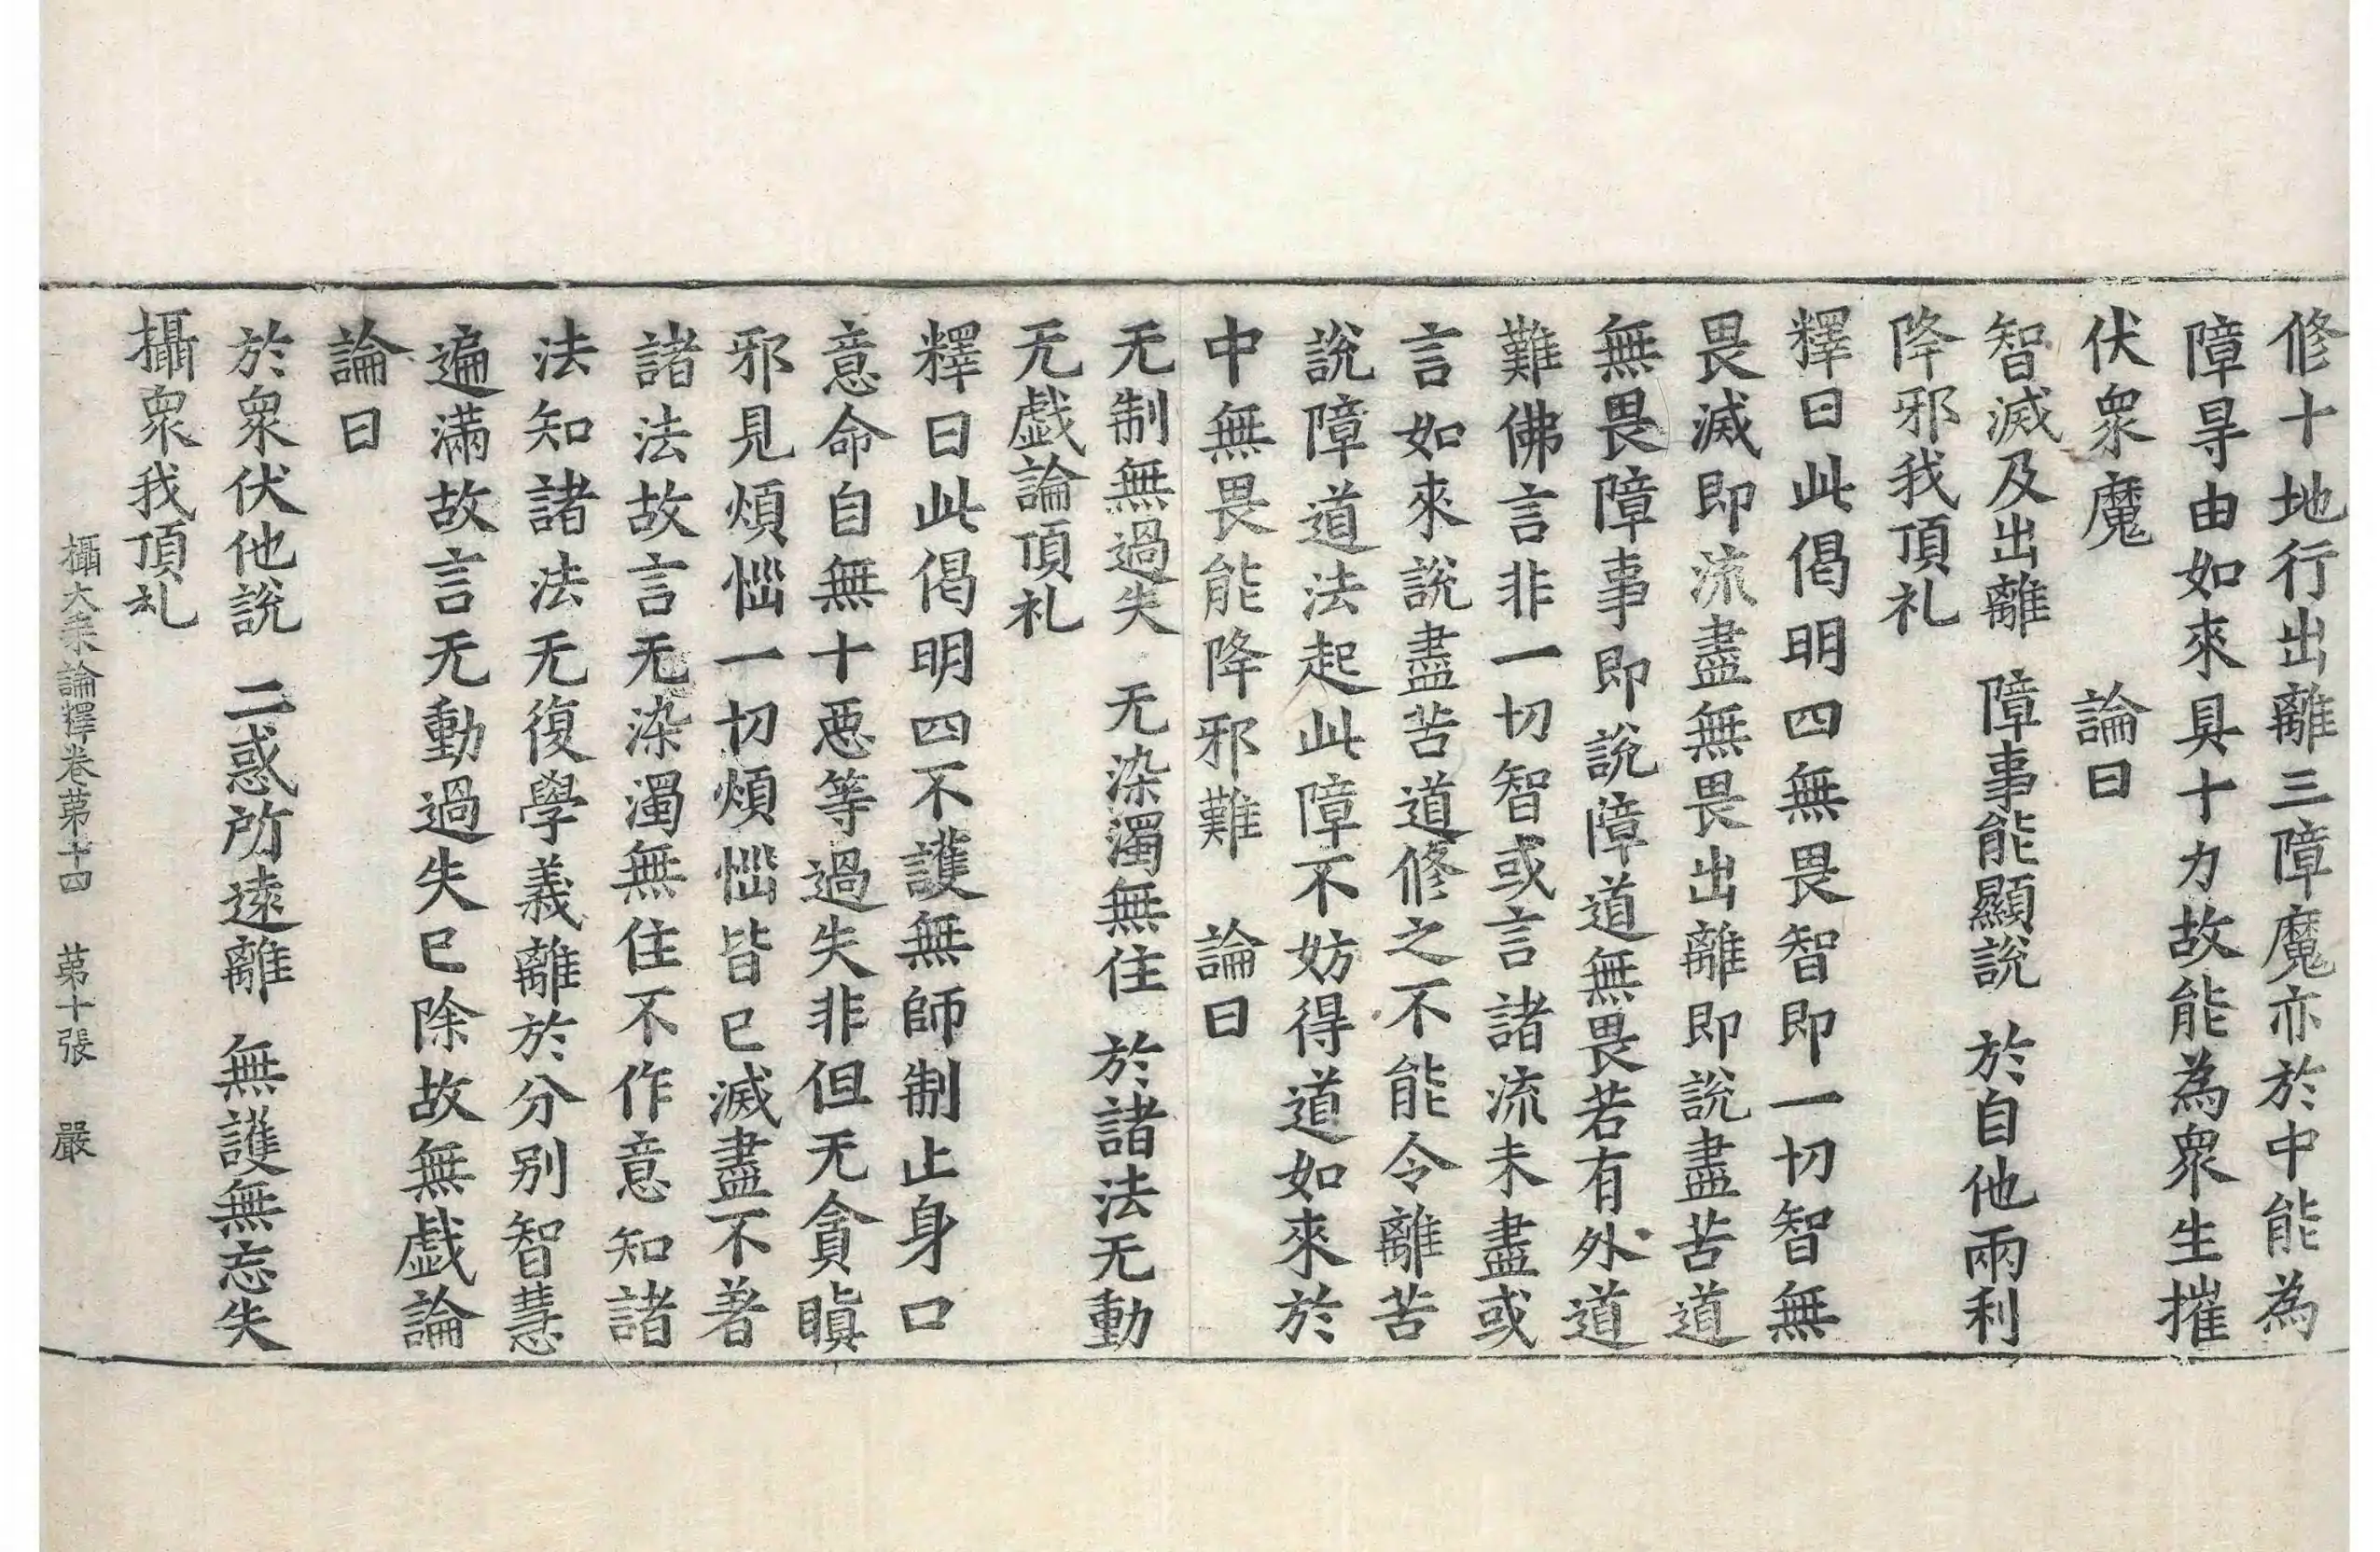 修十地行出離三障魔亦於中能為
障㝵由如來具十力故能為衆生摧
伏衆魔　論曰
智滅及出離　障事能顯說　於自他兩利
降邪我頂礼
釋曰此偈明四無畏智即一切智無
畏滅即流盡無畏出離即說盡苦道
無畏障事即說障道無畏若有外道
難佛言非一切智或言諸流未盡或
言如來說盡苦道修之不能令離苦
說障道法起此障不妨得道如來於
中無畏能降邪難　論曰
无制無過失　无染濁無住　於諸法无動
无戱論頂礼
釋曰此偈明四不護無師制止身口
意命自無十惡等過失非但无貪瞋
邪見煩惱一切煩惱皆已滅盡不著
諸法故言无染濁無住不作意知諸
法知諸法无復學義離於分別智慧
遍滿故言无動過失已除故無戱論
論曰
於衆伏他說　二惑所遠離　無護無忘失
攝衆我頂礼
攝大乗論釋卷第十四　第十張　嚴